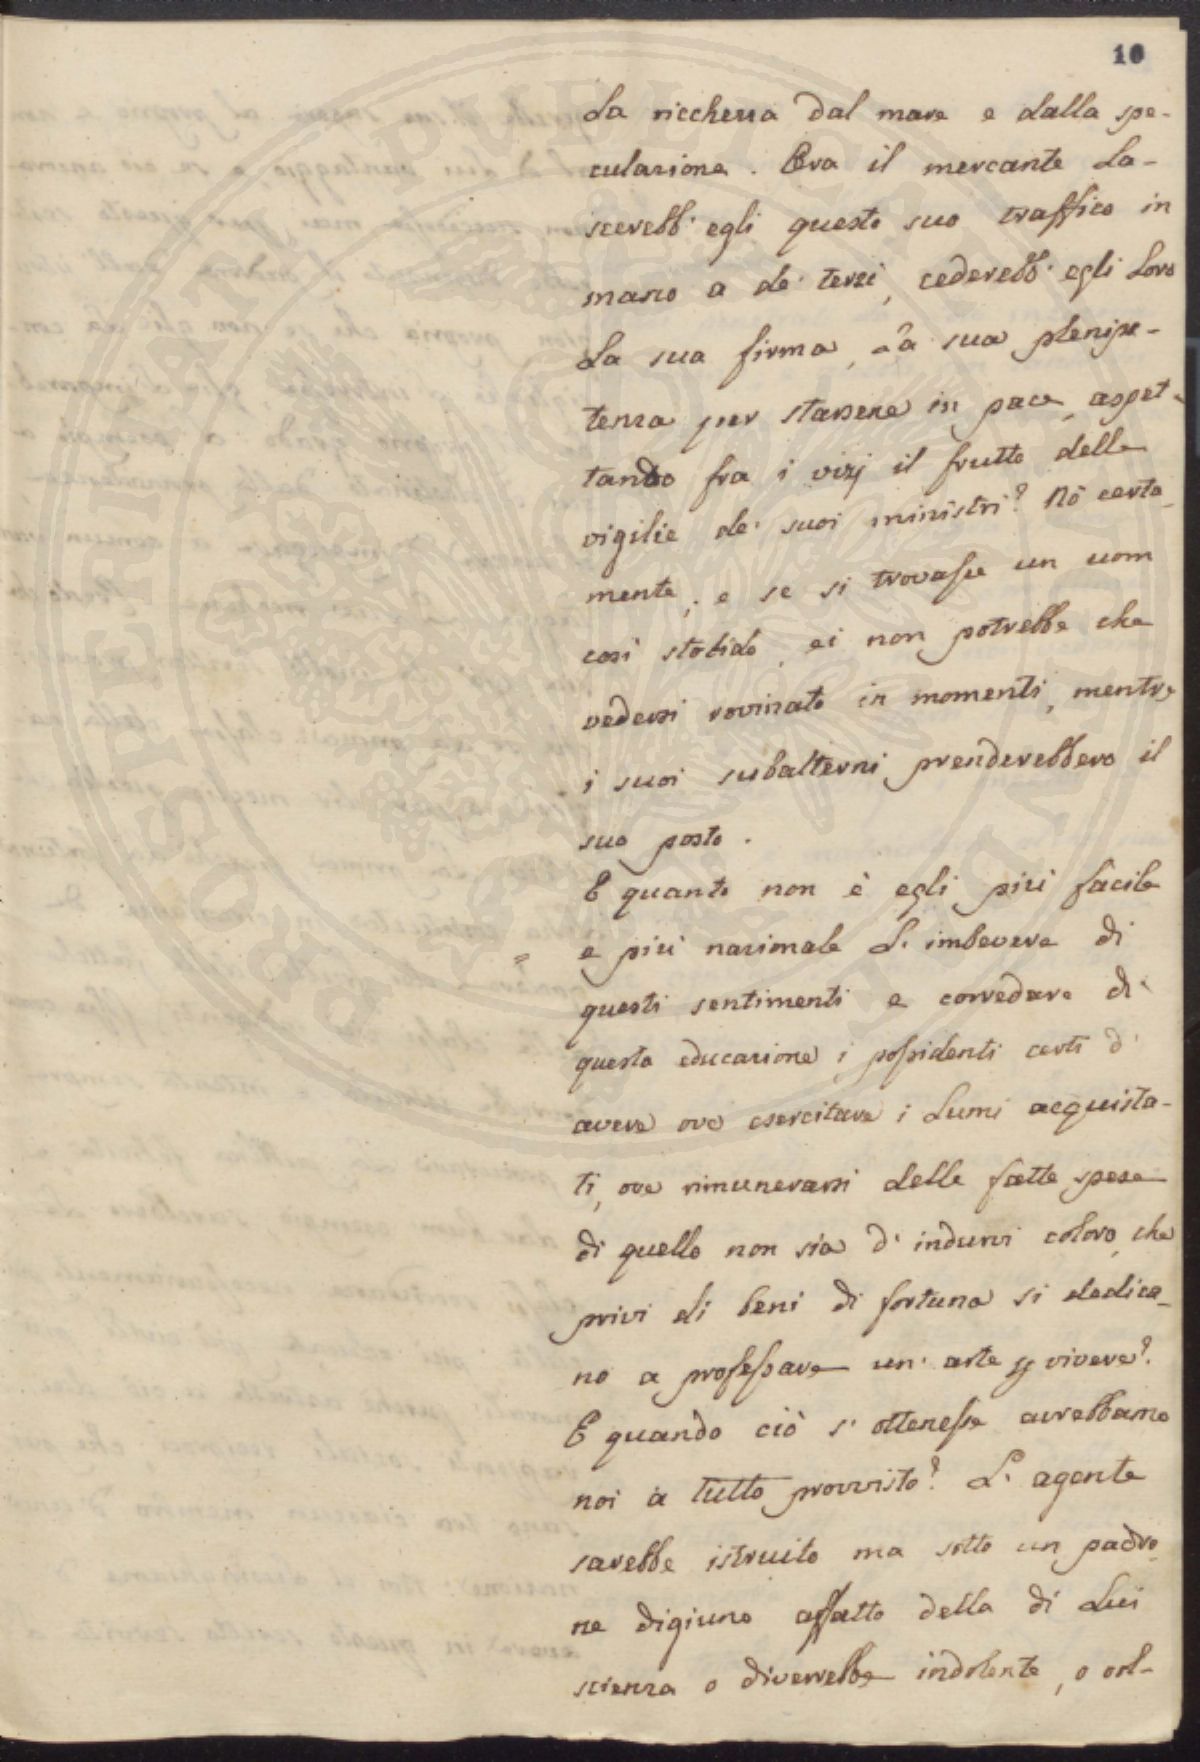 10
la ricchezza dal mare e dalla spe-
culazione. Ora il mercante la-
scerebb' egli questo suo traffico in
mano a de' terzi, cederebb' egli loro
la sua firma, a sua plenipo-
tenza per starsene in pace, aspet-
tando fra i vizj il frutto delle
vigilie de' suoi ministri? Nò certa-
mente; e se si trovasse un uom
così stolido, ei non potrebbe che
vedersi rovinato in momenti, mentre
i suoi subalterni prenderebbero il
suo posto.
E quanto non è egli più facile
e più nazionale l' imbevere di
questi sentimenti e corredare di
questa educazione i possidenti certi d'
avere ove esercitare i lumi acquista-
ti, ove rimunerarsi delle fatte spese
di quello non sia d' indurvi coloro, che
privi di beni di fortuna si dedica-
no a professare un' arte p vivere?
E quando ciò s' ottenesse avrebbamo
noi a tutto provvisto? L' agente
sarebbe istruito ma sotto un padro-
ne digiuno affatto della di lui
scienza o diverrebbe indolente, o
PROSPERITATI PUBLICAE AUGENDAE